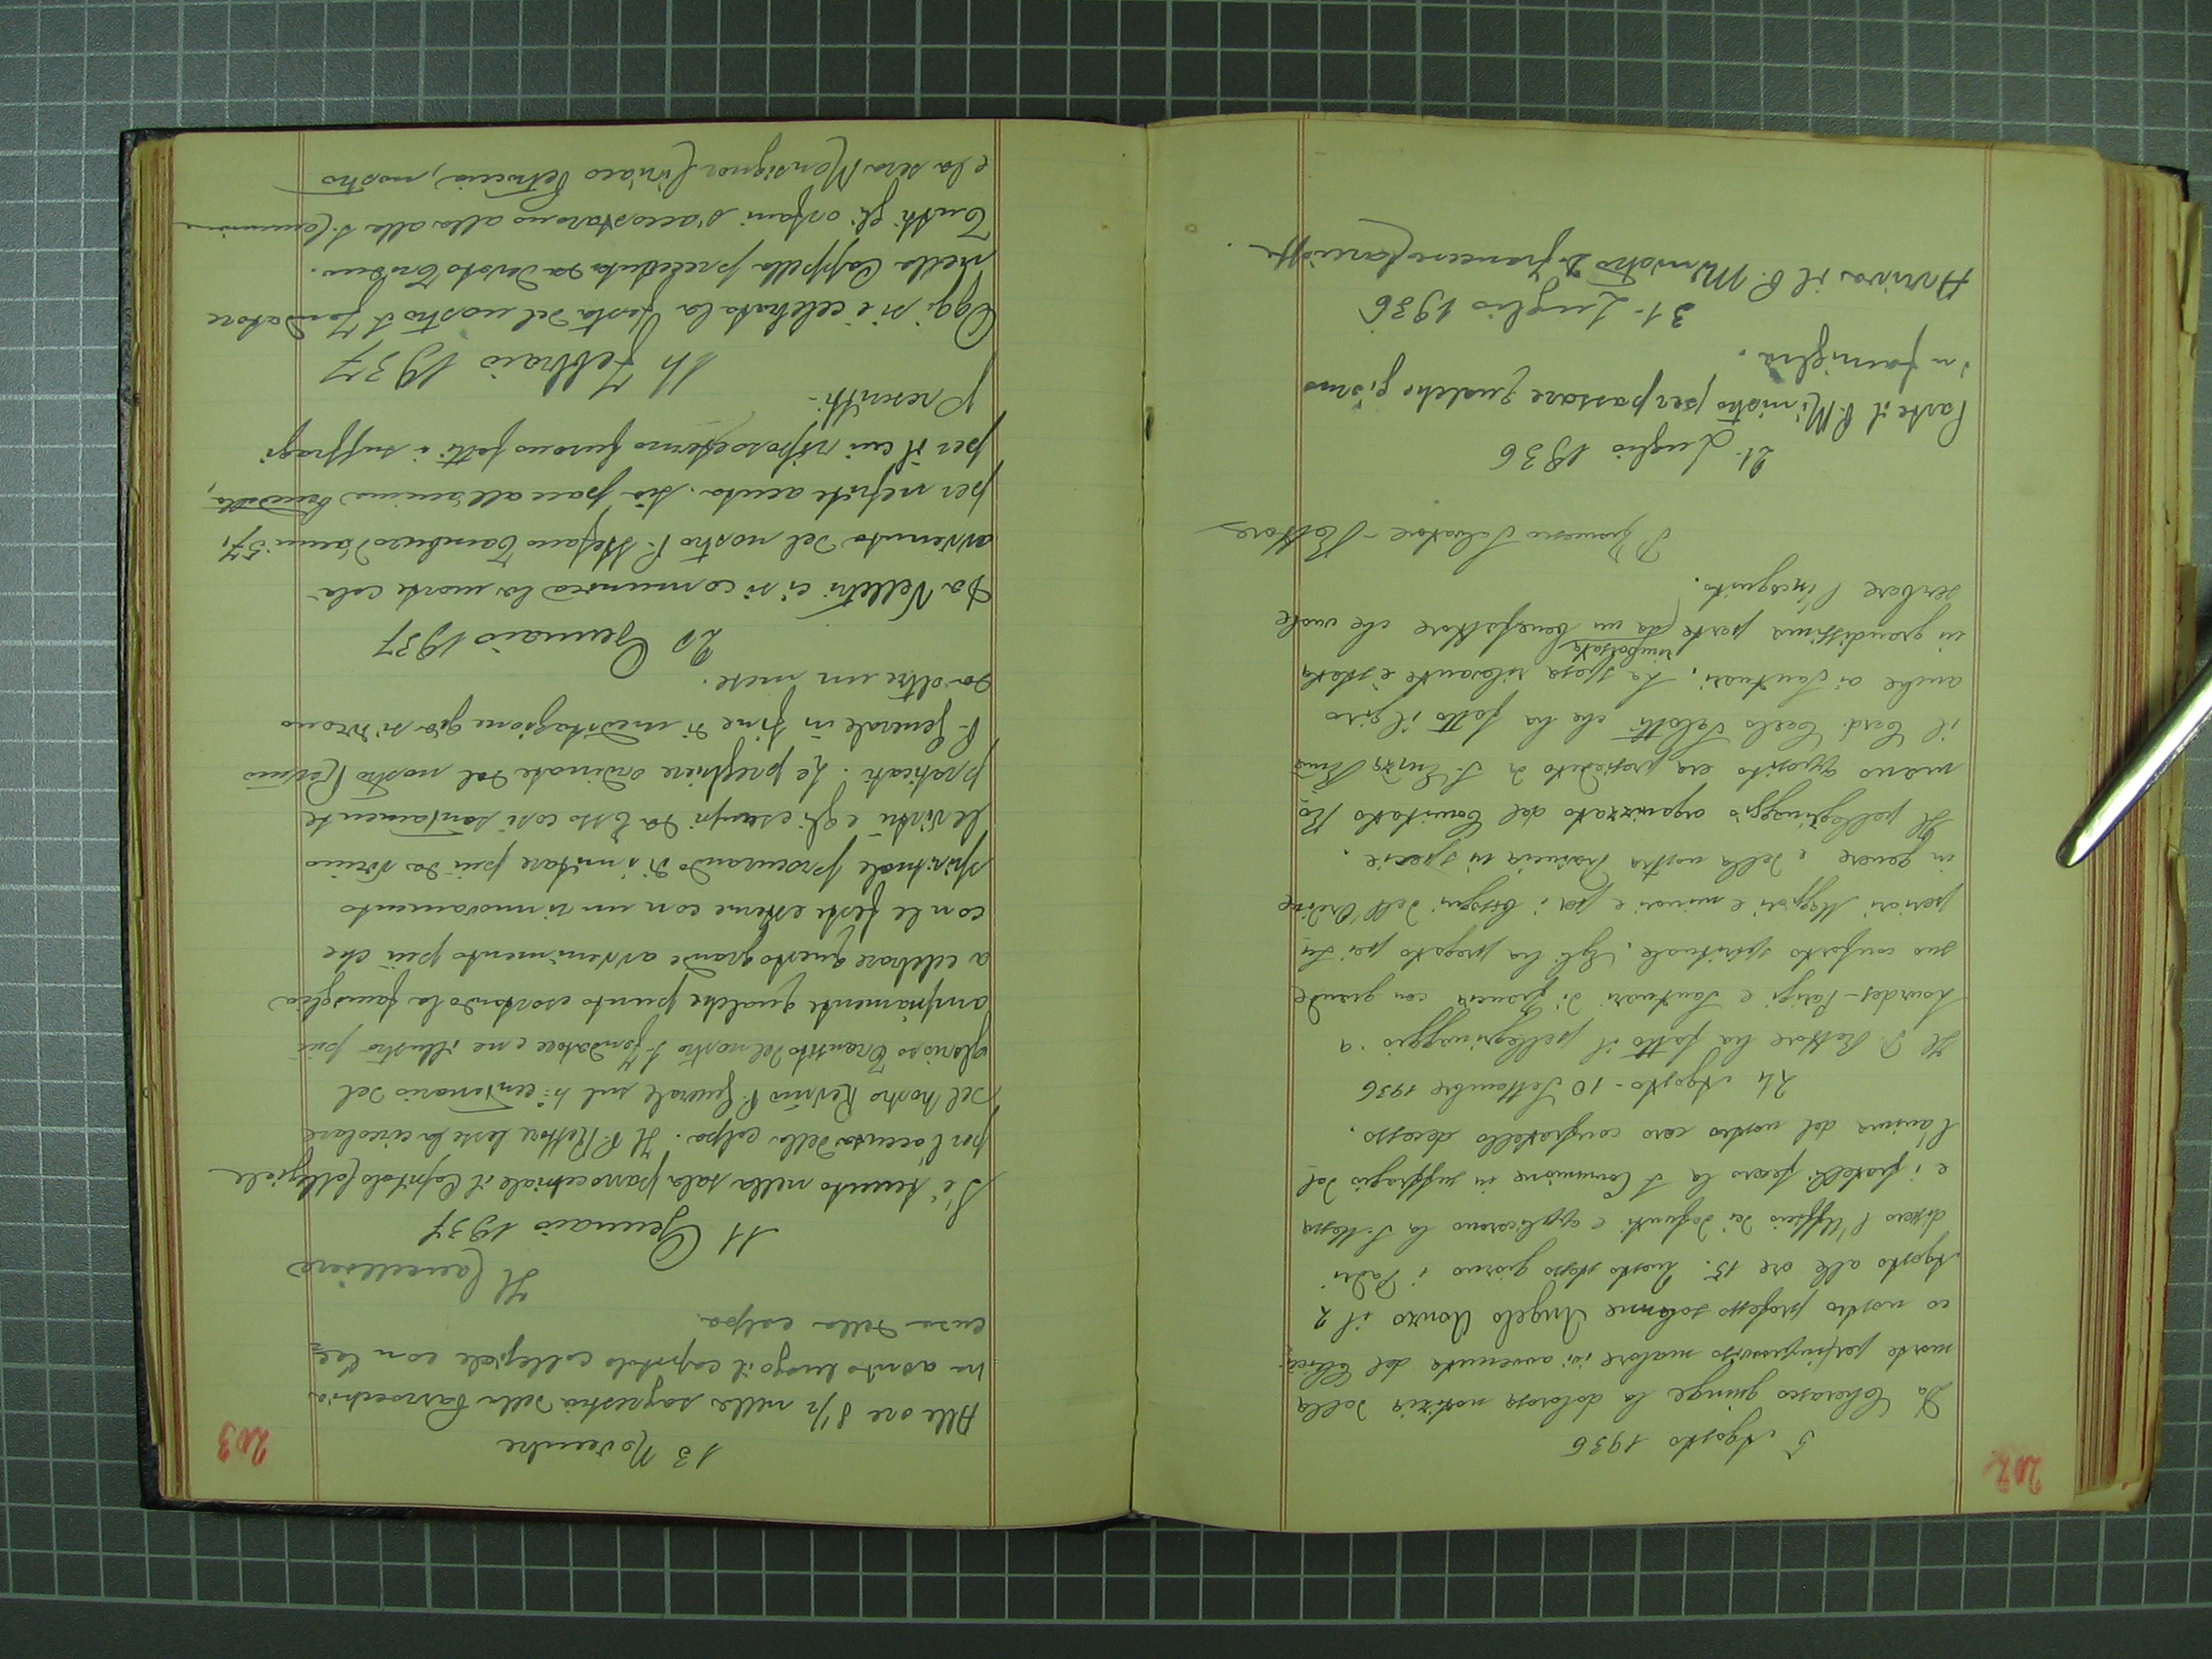 202
5 Agosto 1936
Da Cherasco giunge la dolorosa notizia della
morte per improvviso malore ivi avvenuta del Chieri=
co nostro professo solenne Angelo Aonzo il 2
Agosto alle ore 15. Questo stesso giorno i Padri
dissero l'Ufficio dei defunti e applicarono la S. Messa
e i fratelli fecero la S. Comunione in suffragio del=
l'anima del nostro caro confratello decesso.
24 Agosto - 10 Settembre 1936
Il P. Rettore ha fatto il pellegrinaggio a
Lourdes - Parigi e Santuari di Francia con grande
suo conforto spirituale. Egli ha pregato pei Su=
periori Maggiori e minori e per i bisogni dell'Ordine
in genere e della nostra Provincia in specie.
Il pellegrinaggio organizzato dal Comitato Ro=
mano apposito era presieduto da S. Emza Rma
il Card. Carlo Salotti che ha fatto il giro
anche ai Santuari. La spesa rilevante è stata
rimborsata
in grandissima parte da un benefattore che vuole
serbare l'incognito.
P. Francesco Salvatore - Rettore
21 - Luglio 1936
Parte il P. Ministro per passare qualche giorno
in famiglia.
31 - Luglio 1936
Arriva il P. Ministro D. Francesco
203
13 Novembre
Alle ore 8 1/2 nella sagrestia della Parrocchia
ha avuto luogo il capitolo collegiale con l'ac=
cusa della colpa.
Il Cancelliere
11 Gennaio 1937
S'è tenuto nella sala parrocchiale il Capitolo Collegiale
per l'accusa della colpa. Il P. Rettore lesse la circolare
del nostro Rev.mo P. Generale sul 4° centenario del
glorioso Transito del nostro S. Fondatore e ne illustrò più
ampiamente qualche punto esortando la famiglia
a celebrare questo grande avvenimento più che
con le feste esterne con un rinnovamento
spirituale procurando di imitare più da vicino
le virtù e gli esempi da Esso così santamente
praticati. Le preghiere ordinate dal nostro Rev.mo
P. Generale in fine di meditazione già si dicono
da oltre un mese.
20 Gennaio 1937
Da Velletri ci si comunica la morte colà
avvenuta del nostro F. Stefano Tamburo d'anni 57,
per nefrite acuta. Sia pace all'anima benedetta,
per il cui riposo eterno furono fatti i suffragi
prescritti -
14 Febbraio 1937
Oggi si è celebrata la festa del nostro S. Fondatore
nella Cappella preceduta da devoto Triduo.
Tutti gli orfani s'accostarono alla alla S. Comunione
e la sera Monsignor Ciriaco Petroccia, nostro